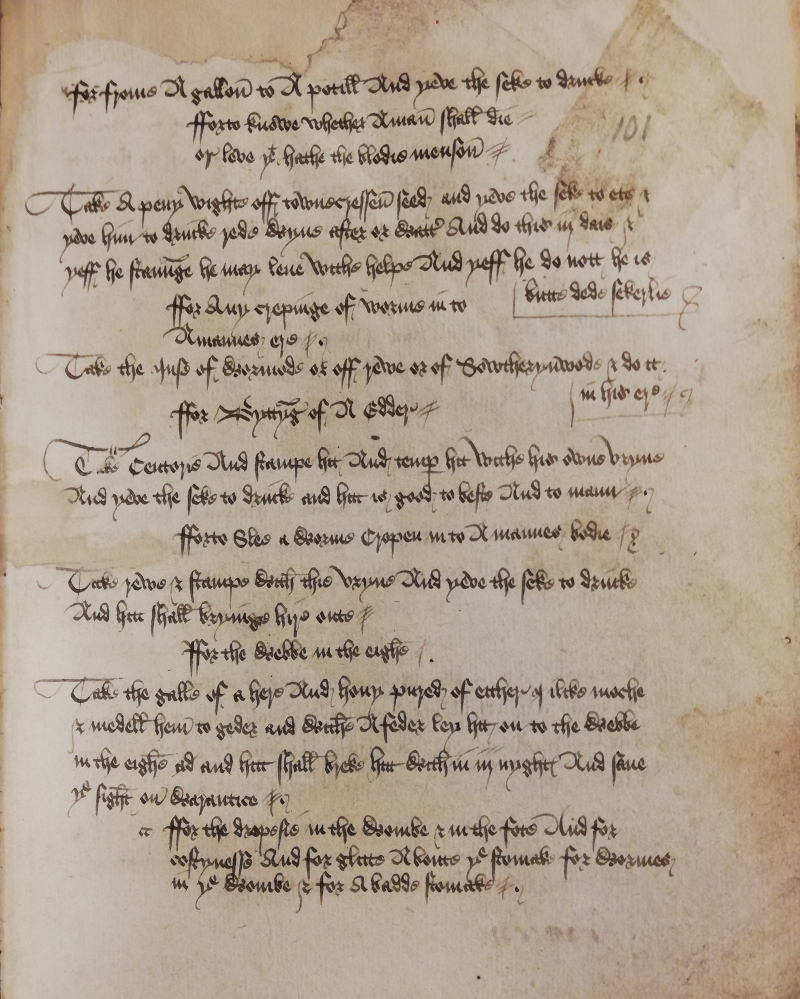 for frome A gallon to A potill And yeve the seke to drinke
101
fforto knowe whether A man shall die
or leve yt hathe the blodie menson
Take A peny wighte off towncressen seed and yeve the seke to ete &
yeve him to drinke rede wyne after or watter And do this iij daie &
yeff he staunge he may leue withe helpe And yeff he do nott he is
butte dede sekerlie
ffor Any crepinge of worme in to
A mannes ere
Take the Juse of wormode or off rewe or of Sowthernwode & do it
in his ere
ffor of A Edder
Take Centorie And stampe hit And temp hit withe his owne Vryne
And yeve the seke to drincke and hitt is good to beste And to mann
fforto Slee a worme Cropen in to A mannes bodie
Take rewe & stampe with this vryne And yeve the seke to drincke
And hitt shall brynge hire oute
ffor the webbe in the eighe
Take the galle of a here And hony pured of ether ilike moche
& medell hem to geder and withe A feder ley hit on to the webbe
in the eighe ad and hitt shall breke hitt within iij nyght And saue
ye sight on warantice
ffor the dropesie in the wombe & in the fote And for
costynesse And for glitte A boute ye stomak for wormes
in ye wombe & for A badde stomake